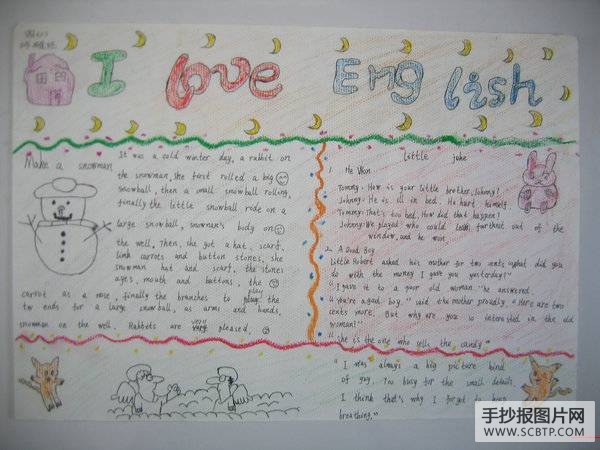 I Love English
Make a snowman
It was a cold winter day, a rabbit on
the snowman, She first rolled a big
snowball, then a small snowball rolling,
finally the little snowball ride on a
large snowball, snowman's body on
the well, Then, she got a hat, scarf,
link carrots and button stones, she
snowman hat and scarf, the stones
ayes, mouth and buttons, the
carrot as a nose, finally the branches to play play the
tw ends for a large snowball, as arms and hands,
snowman on the well. Rabbits are very very pleased,
little joke
1. He Won
Tommy: How is your little brother, Johnny?
Johnny: He is ill in bed. He hurt himself
Tommy: That's too bed, How did that happen?
Johnny: We played who could lean furthest out of the
window, and he won
2. A Good Boy
Little Robert asked his mother for two cents. "What did you
do with the money I gave you yesterday?"
"I gave it to a poor old woman." he answered.
"You're a good boy," said the mother proudly, "Here are two
cents more. But why are you so interested in the old
woman?"
"She is the one who sells the candy."
"I was always a big picture kind
of guy. Too busy for the small details.
I think that's why I forgot to keep
breathing."
手抄报图片网
WWW.SCBTP.COM